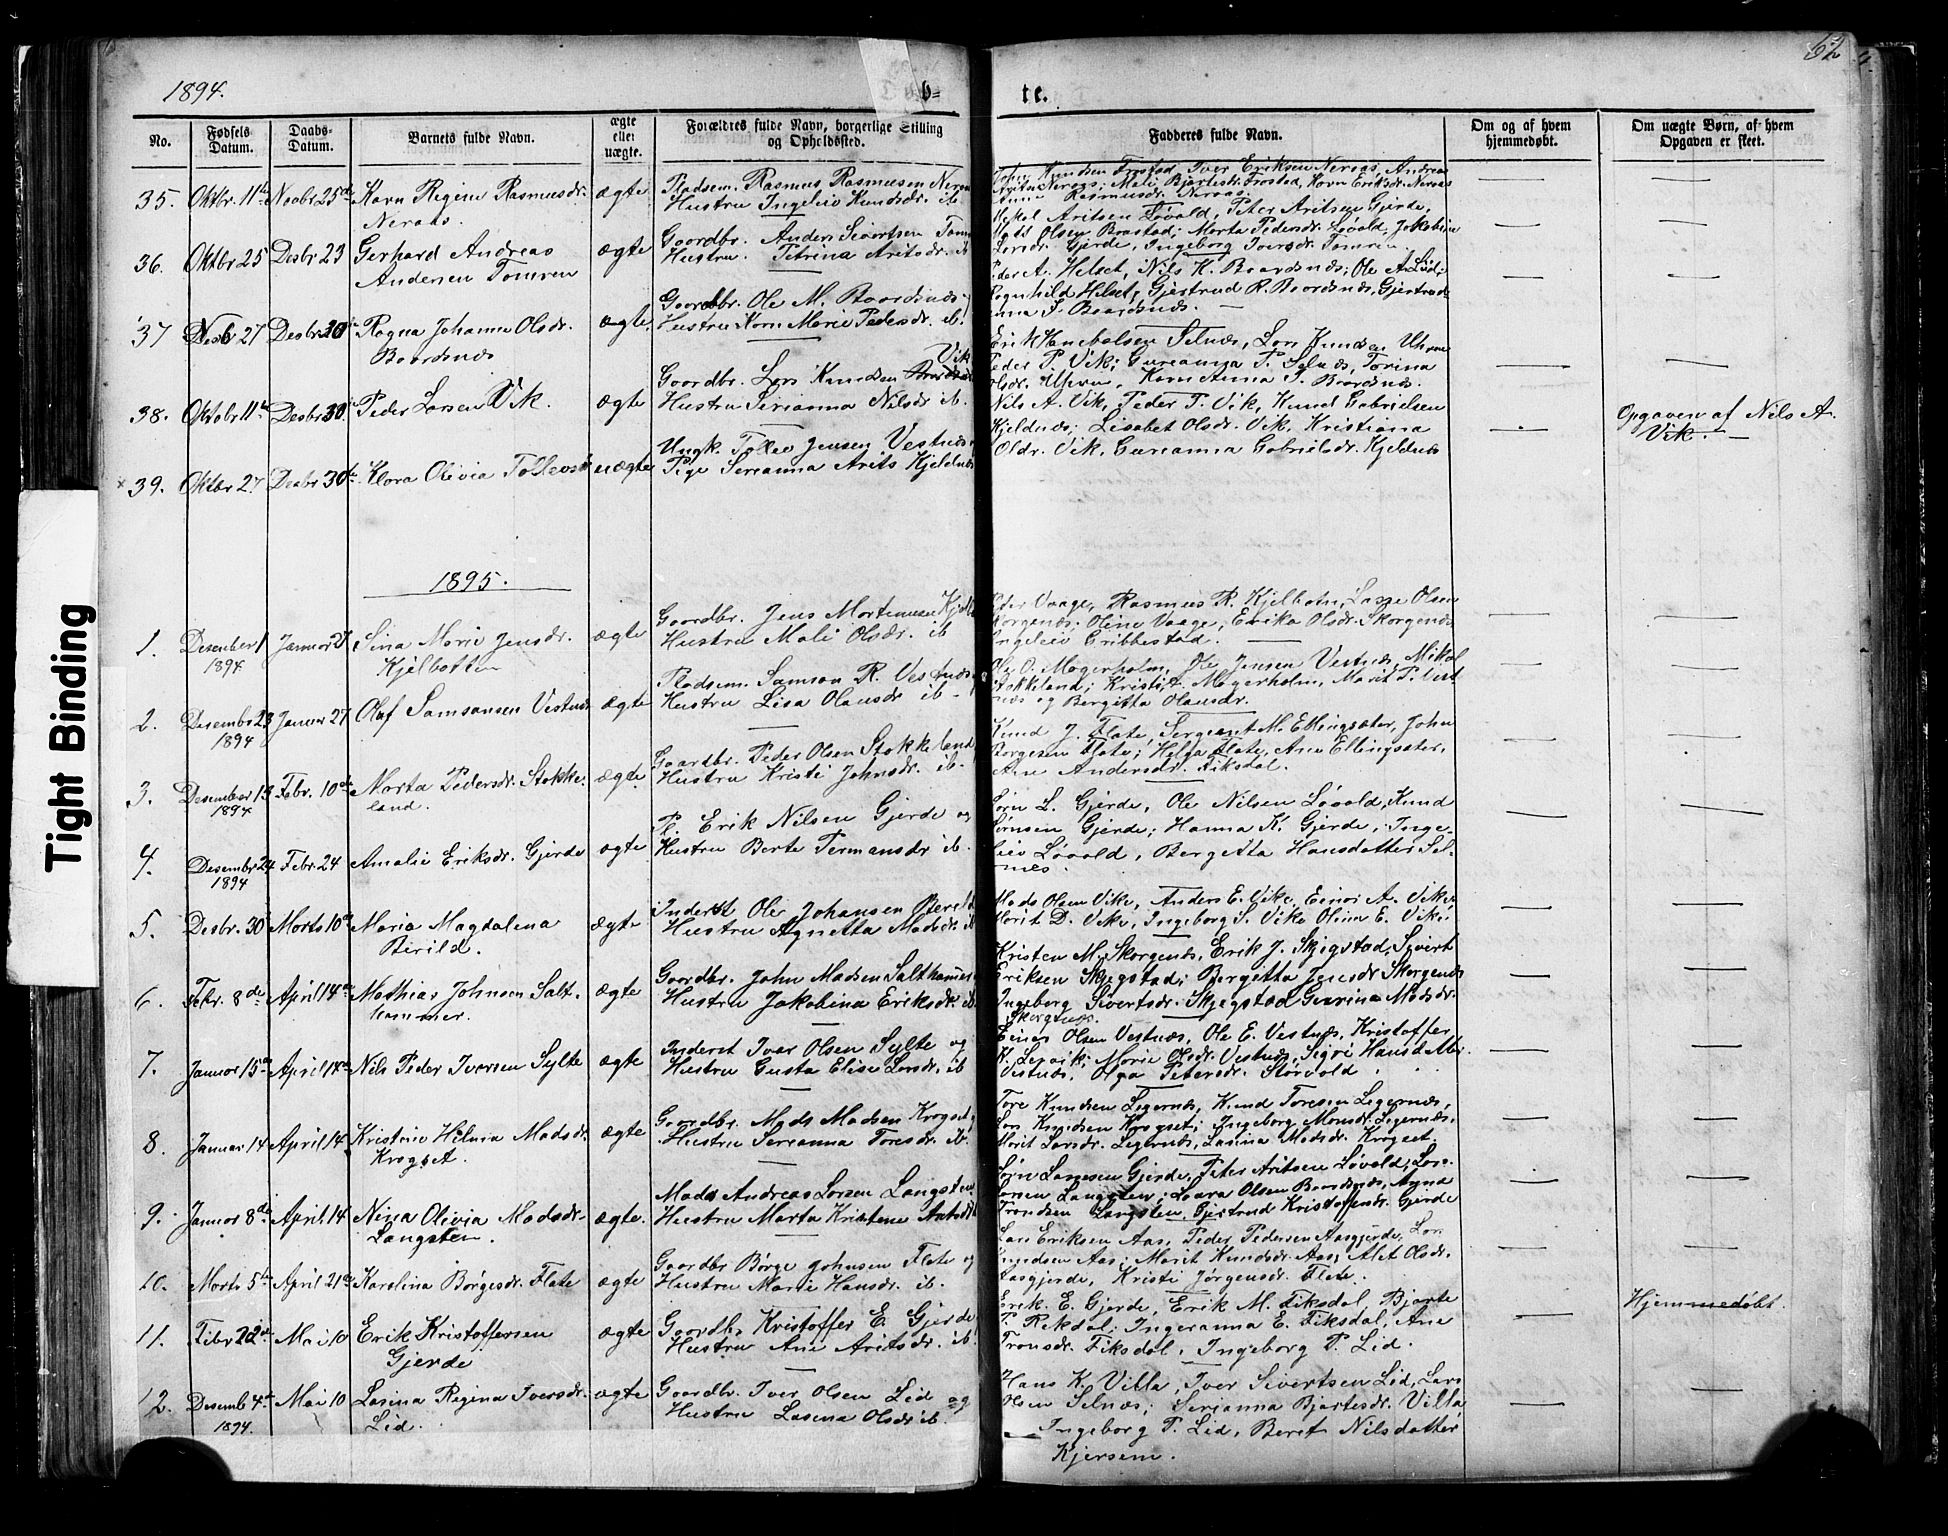 1894.
b=
te.
62
No.
Fødsels Datum.
Daabs- Datum.
Barnets fulde Navn.
ægte eller uægte.
Forældres fulde Navn, borgerlige Stilling og Opholdssted.
Fadderes fulde Navn.
Om og af hvem hjemmedøbt.
Om uægte Børn, af hvem Opgaven er skeet.
35. Oktbr. 11te Novbr 25de Karn Regine Rasmusdr. ægte Pladsem. Rasmus Rasmusen Neraa
Neraas. Hustru Ingeleiv Knudsdr. ib.
John Knudsen Frostad, Iver Eriksen Neraas, Andreas
Aritsen Neraas; Mali Bjartesdr. Frostad, Karn Eriksdr. Neraas
Anne Rasmusdr. Neraas.
36. Oktbr 25 Desbr 23 Gerhard Andreas ægte Gaardbr. Anders Sivertsen Tomr
Andersen Tomren Hustru. Petrina Aritsdr. ib
Mikal Aritsen Løvold, Peter Aritsen Gjerde,
Mads Olsen Brastad; Marta Pedersdr. Løvold, Jakobine
Larsdr. Gjerde, Ingeborg Iversdr. Tomren.
37 Desbr 30 Ragna Johanne Olsdr. ægte. Gaardbr. Ole M. Baardsnæs
Baardsnæs Hustru Karn Marie Pedersdr. ib.
Peder A. Helset, Nils K. Baardsnæs; Ole A. Lid;
Ragnhild Helset, Gjertrud R. Baardsnæs, Gjertrud
Anna S. Baardsnæs.
38. Oktobr 11te Desbr 30 Peder Larsen Vik. ægte Gaardbr. Lars Knudsen Vik
Hustru Serianna Nilsdr ib.
Erik Hanebolsen Selnæs, Lars Knudsen Uhrn
Peder P. Vik; Gurianna P. Selnæs, Torina
Olsdr. Uhrn, Karn Anna S. Baardsnæs.
39. Oktbr 27 Desbr 30te Klara Olivia Tollevsd uægte Ungk. Tollev Jensen Vestnæs
Pige Serianna Arits Kjeldnæs
Nils A. Vik, Peder P. Vik, Knud Gabrielsen
Kjeldnæs; Lisabet Olsdr. Vik, Kristiana
Oldr. Vik, Gurianna Gabrielsdr. Kjeldnæs
Opgaven af Nils A.
Vik.
1895.
1. Desember 1 1894 Januar Sina Marie Jensdr. ægte Gaardbr. Jens Mortensen Kjelb
Kjelbotten Hustru Mali Olsdr. ib
Peder Vaage, Rasmus R. Kjelbotn, Lasse Olsen
Skorgenæs; Oline Vaage; Erika Olsdr. Skorgenæs
Ingeleiv Gribbestad.
2. Desembr 23 1894 Januar 27 Olaf Samsonsen Vestnæs ægte Pladsem. Samson R. Vestnæs
Hustru Lisa Olausdr ib
Ole O. Magerholm, Ole Jensen Vestnæs, Mikal
Stokkeland; Kristi A. Magerholm, Marit P. Vest
næs og Bergitta Olausdr.
3. Desember 13 1894 Febr. 10de Marta Pedersdr. Stokke- ægte Gaardbr. Peder Olsen Stokkeland
land. Hustru Kristi Johnsdr. ib.
Knud J. Flate, Sergeant M. Ellingsæter, John
Børgesen Flate; Helga Flate, Ane Ellingsæter,
Ane Andersdr. Fiksdal.
4. Desembr 24 1894 Febr. 24 Amalie Eriksdr. Gjerde ægte Pl. Erik Nilsen Gjerde og
Hustru Berte Permansdr ib.
Sørn L. Gjerde, Ole Nilsen Løvold, Knud
Sørnsen Gjerde; Hanna K. Gjerde, Inge-
leiv Løvold, Bergetta Hansdatter Sel-
næs.
5. Desbr. 30 Marts 10de Maria Magdalena ægte Inderst Ole Johansen Berild
Berild. Hustru Agnetta Madsdr. ib
Mads Olsen Vike, Anders E. Vike, Einar A. Vike;
Marit D. Vike, Ingeborg S. Vike Oline E. Vike
6. Febr. 8de April 14de Mathias Johnsen Salt- ægte Gaardbr. John Madsen Salthammer
hammer. Hustru Jakobina Eriksdr. ib
Kristen M. Skorgenæs, Erik J. Skjegstad, Syvert
Eriksen Skjegstad; Bergetta Jensdr Skorgenæs
Ingeborg Sivertsdr. Skjegstad Gurina Madsdr.
Skorgenæs.
7. Januar 15de April 14de Nils Peder Iversen Sylte ægte Inderst Ivar Olsen Sylte og
Hustru Gusta Elise Larsdr. ib
Einar Olsen Vestnæs, Ole E. Vestnæs, Kristoffer
K. Leirvik; Marie Olsdr. Vestnæs, Sigri Hansdatter
Vestnæs, Olga Petersdr. Storvold.
8. Januar 14 April 14 Kristine Helma Madsdr. ægte Gaardbr. Mads Madsen Krogset
Krogset. Hustru Serianna Toresdr. ib.
Tore Knudsen Legernæs, Knud Toresen Legernæs,
Lars Knudsen Krogset; Ingeborg Monsdr. Legernæs,
Marit Larsdr. Legernæs, Lasina Madsdr. Krogset.
9. Januar 8de April 14 Nina Olivia Madsdr. ægte. Mads Andreas Larsen Langsten
Langsten. Hustru Marta Kristine Aritsd
Sørn Larsesen Gjerde, Peter Aritsen Løvold, Lars
Larsen Langsten; Laura Olsen Baardsnæs, Anna
Trondsen Langsten, Gjertrud Kristoffersdr. Gjerde
10. Marts 5te April 21de Karolina Børgesdr. Flate ægte Gaardbr Børge Johnsen Flate og
Hustru Marte Hansdr. ib.
Lars Eriksen Aas, Peder Pedersen Aasgjerde, Lars
Knudsen Aas; Marit Knudsdr. Aas, Alet Olsdr.
Aasgjerde, Kristi Jørgensdr. Flate.
11. Febr 22de Mai 10 Erik Kristoffersen ægte Gaardb. Kristoffer E. Gjerde
Gjerde Hustru Ane Aritsdr. ib.
Erik E. Gjerde, Erik M. Fiksdal Bjarte
P. Rekdal; Ingeranna E. Fiksdal, Ane
Tronsdr. Fiksdal, Ingeborg P. Lid.
Hjemmedøbt.
12. Desemb 4de 1894. Mai 10 Lasina Regina Iversdr. ægte Gaardbr. Iver Olsen Lid og
Lid. Hustru Lasena Olsdr ib.
Hans K. Villa, Iver Sivertsen Lid, Lars
Olsen Selnæs; Serianna Bjartesdr. Villa
Ingeborg P. Lid, Beret Nilsdatter
Kjersem.
Tight Binding